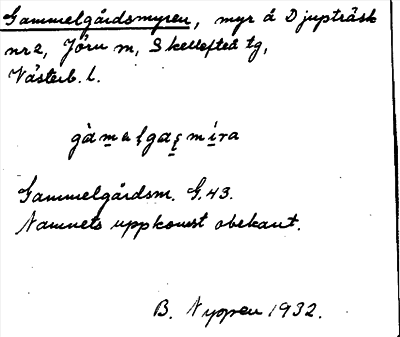 Gammelgårdsmyren, myr å Djupträsk
nr 2, Jörn sn, Skellefteå tg,
Västerb. l.
Gammelgårdsm. G.43.
Namnets uppkomst obekant.
B. Nyppen 1932.